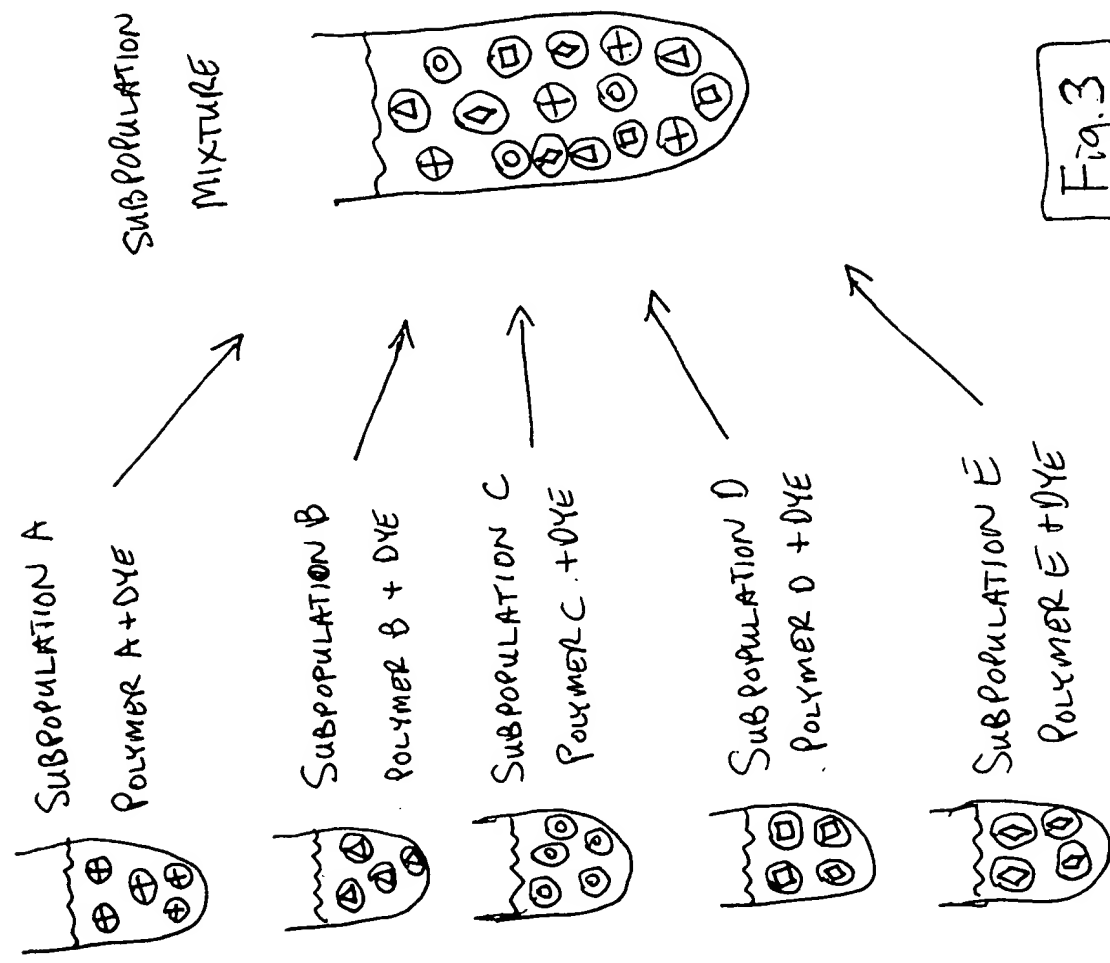 SUBPOPULATION A
POLYMER A+DYE
SUBPOPULATION B
POLYMER B + DYE
SUBPOPULATION C
POLYMER C. +DYE
SUBPOPULATION D
POLYMER D +DYE
SUBPOPULATION E
POLYMER E +DYE
SUBPOPULATION
MIXTURE
Fig.3